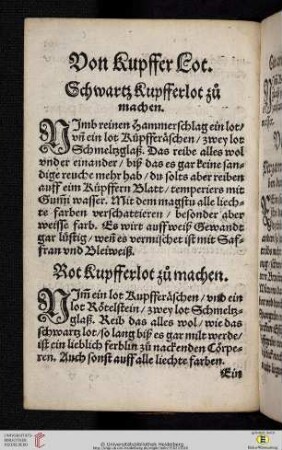 Von Kupffer Lot.
Schwartz Kupfferlot zů
machen.
NImb reinen Hammerschlag ein lot/
vñ ein lot Küpfferäschen/ zwey lot
Schmeltzglaß. Das reibe alles wol
vnder einander/ biß das es gar keine san-
dige reuche mehr hab/ du solts aber reiben
auff eim Küpffern Blatt/ temperiers mit
Gum̃i wasser. Mit dem magstu alle liech-
te farben verschattieren/ besonder aber
weisse farb. Es wirt auff weiß Gewandt
gar lüftig/ weñ es vermischet ist mit Saf-
fran vnd Bleiweiß.
Rot Kupfferlot zů machen.
NIm̃ ein lot Kupfferäschen/ vnd ein
lot Rötelstein/ zwey lot Schmeltz-
glaß. Reib das alles wol/ wie das
schwartz lot/ so lang biß es gar milt werde/
ist ein lieblich ferblin zů nackenden Cörpe-
ren. Auch sonst auff alle liechte farben.
Ein
UNIVERSITÄTS-
BIBLIOTHEK
HEIDELBERG
© Universitätsbibliothek Heidelberg